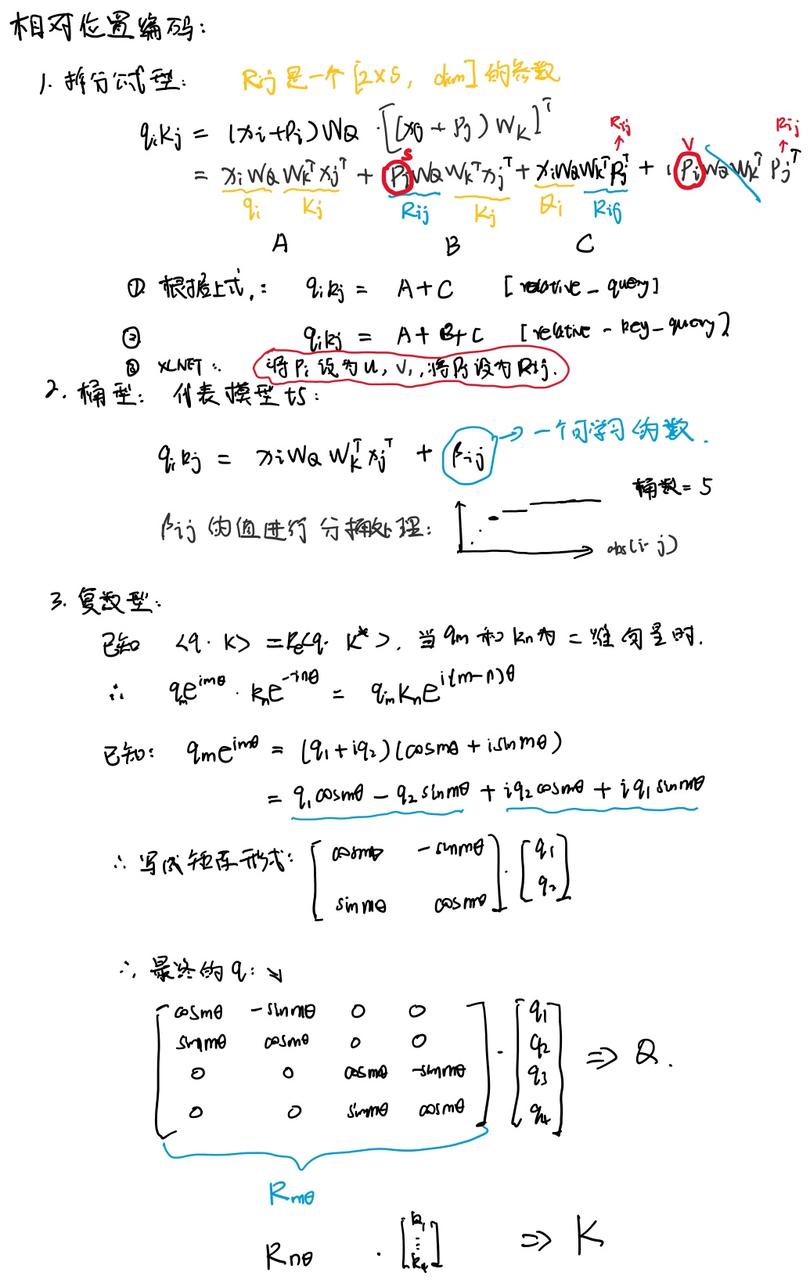 相对位置编码:
1. 拆分公式型: Rij 是一个 [2×5, dim] 的参数
qikj = (xi+Pi)WQ · [(xj+Pj)WK]^T
Rij Rij
↑ ↑
= xiWQWK^Txj^T + PiWQWK^Txj^T + xiWQWK^TPj^T + PiWQWK^TPj^T
qi Kj Rij Kj Qi Rij
A B C
① 根据上式,: qikj = A+C [relative-query]
② qikj = A+B+C [relative-key-query]
③ XLNET: 将Pi设为u, v, 将Pj设为Rij.
2. 桶型: 代表模型t5:
qikj = xiWQWK^Txj^T + βij → 一个可学习的数.
桶数=5
βij 的值进行分桶处理: abs(i-j)
3. 复数型:
已知 <q·K> = Re<q·K*>, 当qm和kn为二维向量时.
∴ qme^imθ · kne^-inθ = qmKne^i(m-n)θ
已知: qme^imθ = (q1+iq2)(cosmθ+isinmθ)
= q1cosmθ - q2sinmθ + iq2cosmθ + iq1sinmθ
∴ 写成矩阵形式: [cosmθ -sinmθ] · [q1]
[sinmθ cosmθ] [q2]
∴ 最终的q: ↘
[cosmθ -sinmθ 0 0] [q1]
[sinmθ cosmθ 0 0] · [q2] ⇒ Q.
[0 0 cosmθ -sinmθ] [q3]
[0 0 sinmθ cosmθ] [q4]
Rmθ
Rnθ · [k1 ⋮ k4] ⇒ K